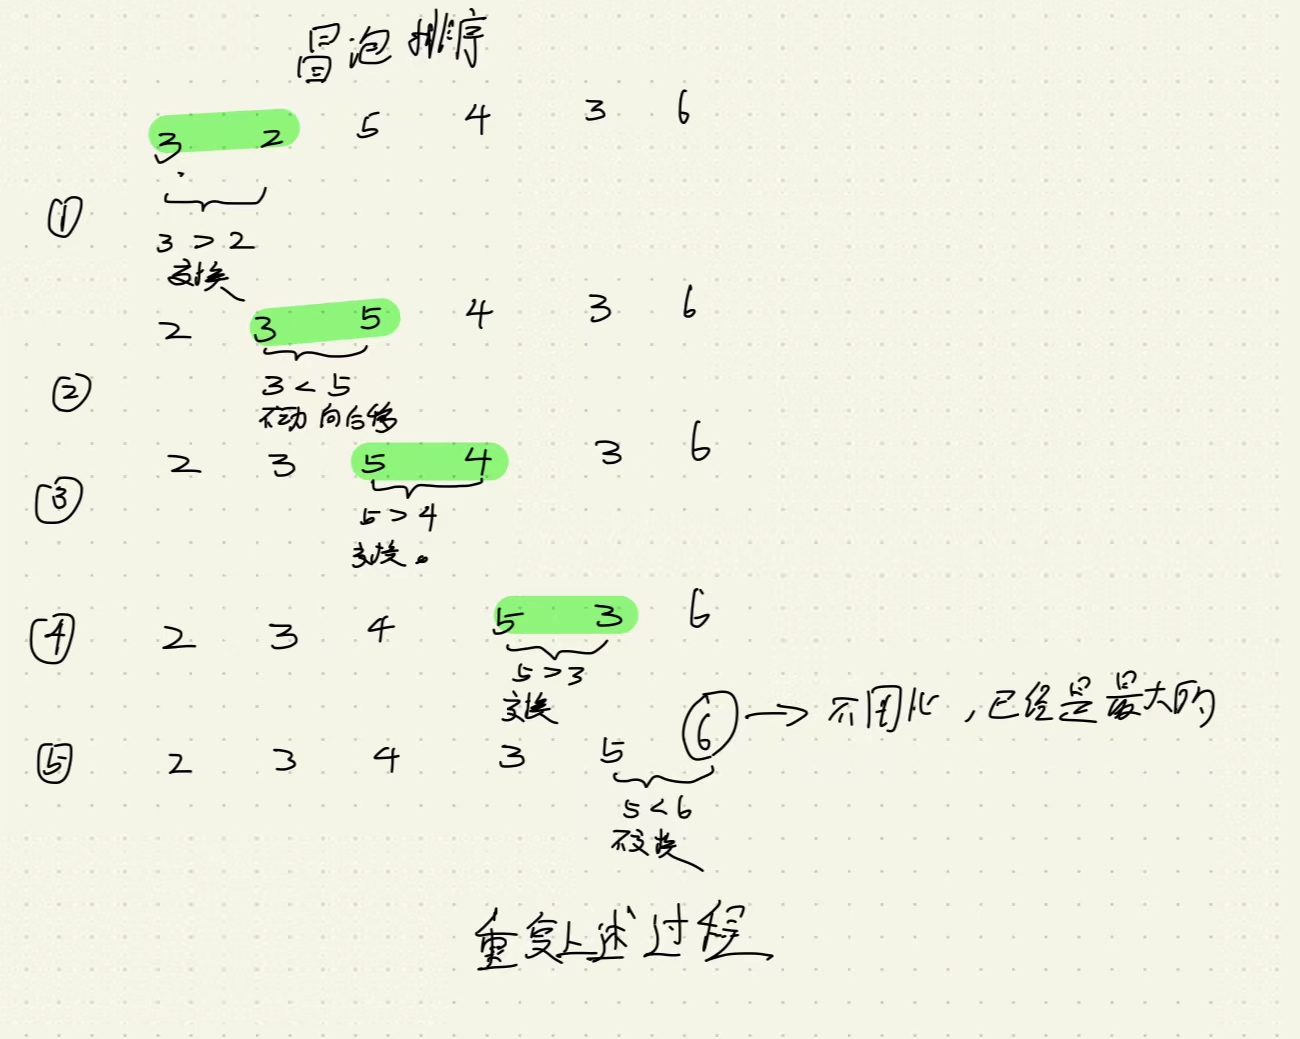 冒泡排序
3 2 5 4 3 6
①
3 > 2
交换
2 3 5 4 3 6
②
3 < 5
不动 向后移
2 3 5 4 3 6
③
5 > 4
交换。
④ 2 3 4 5 3 6
5 > 3
交换
⑤ 2 3 4 3 5 6 → 不用比,已经是最大的
5 < 6
不交换
重复上述过程